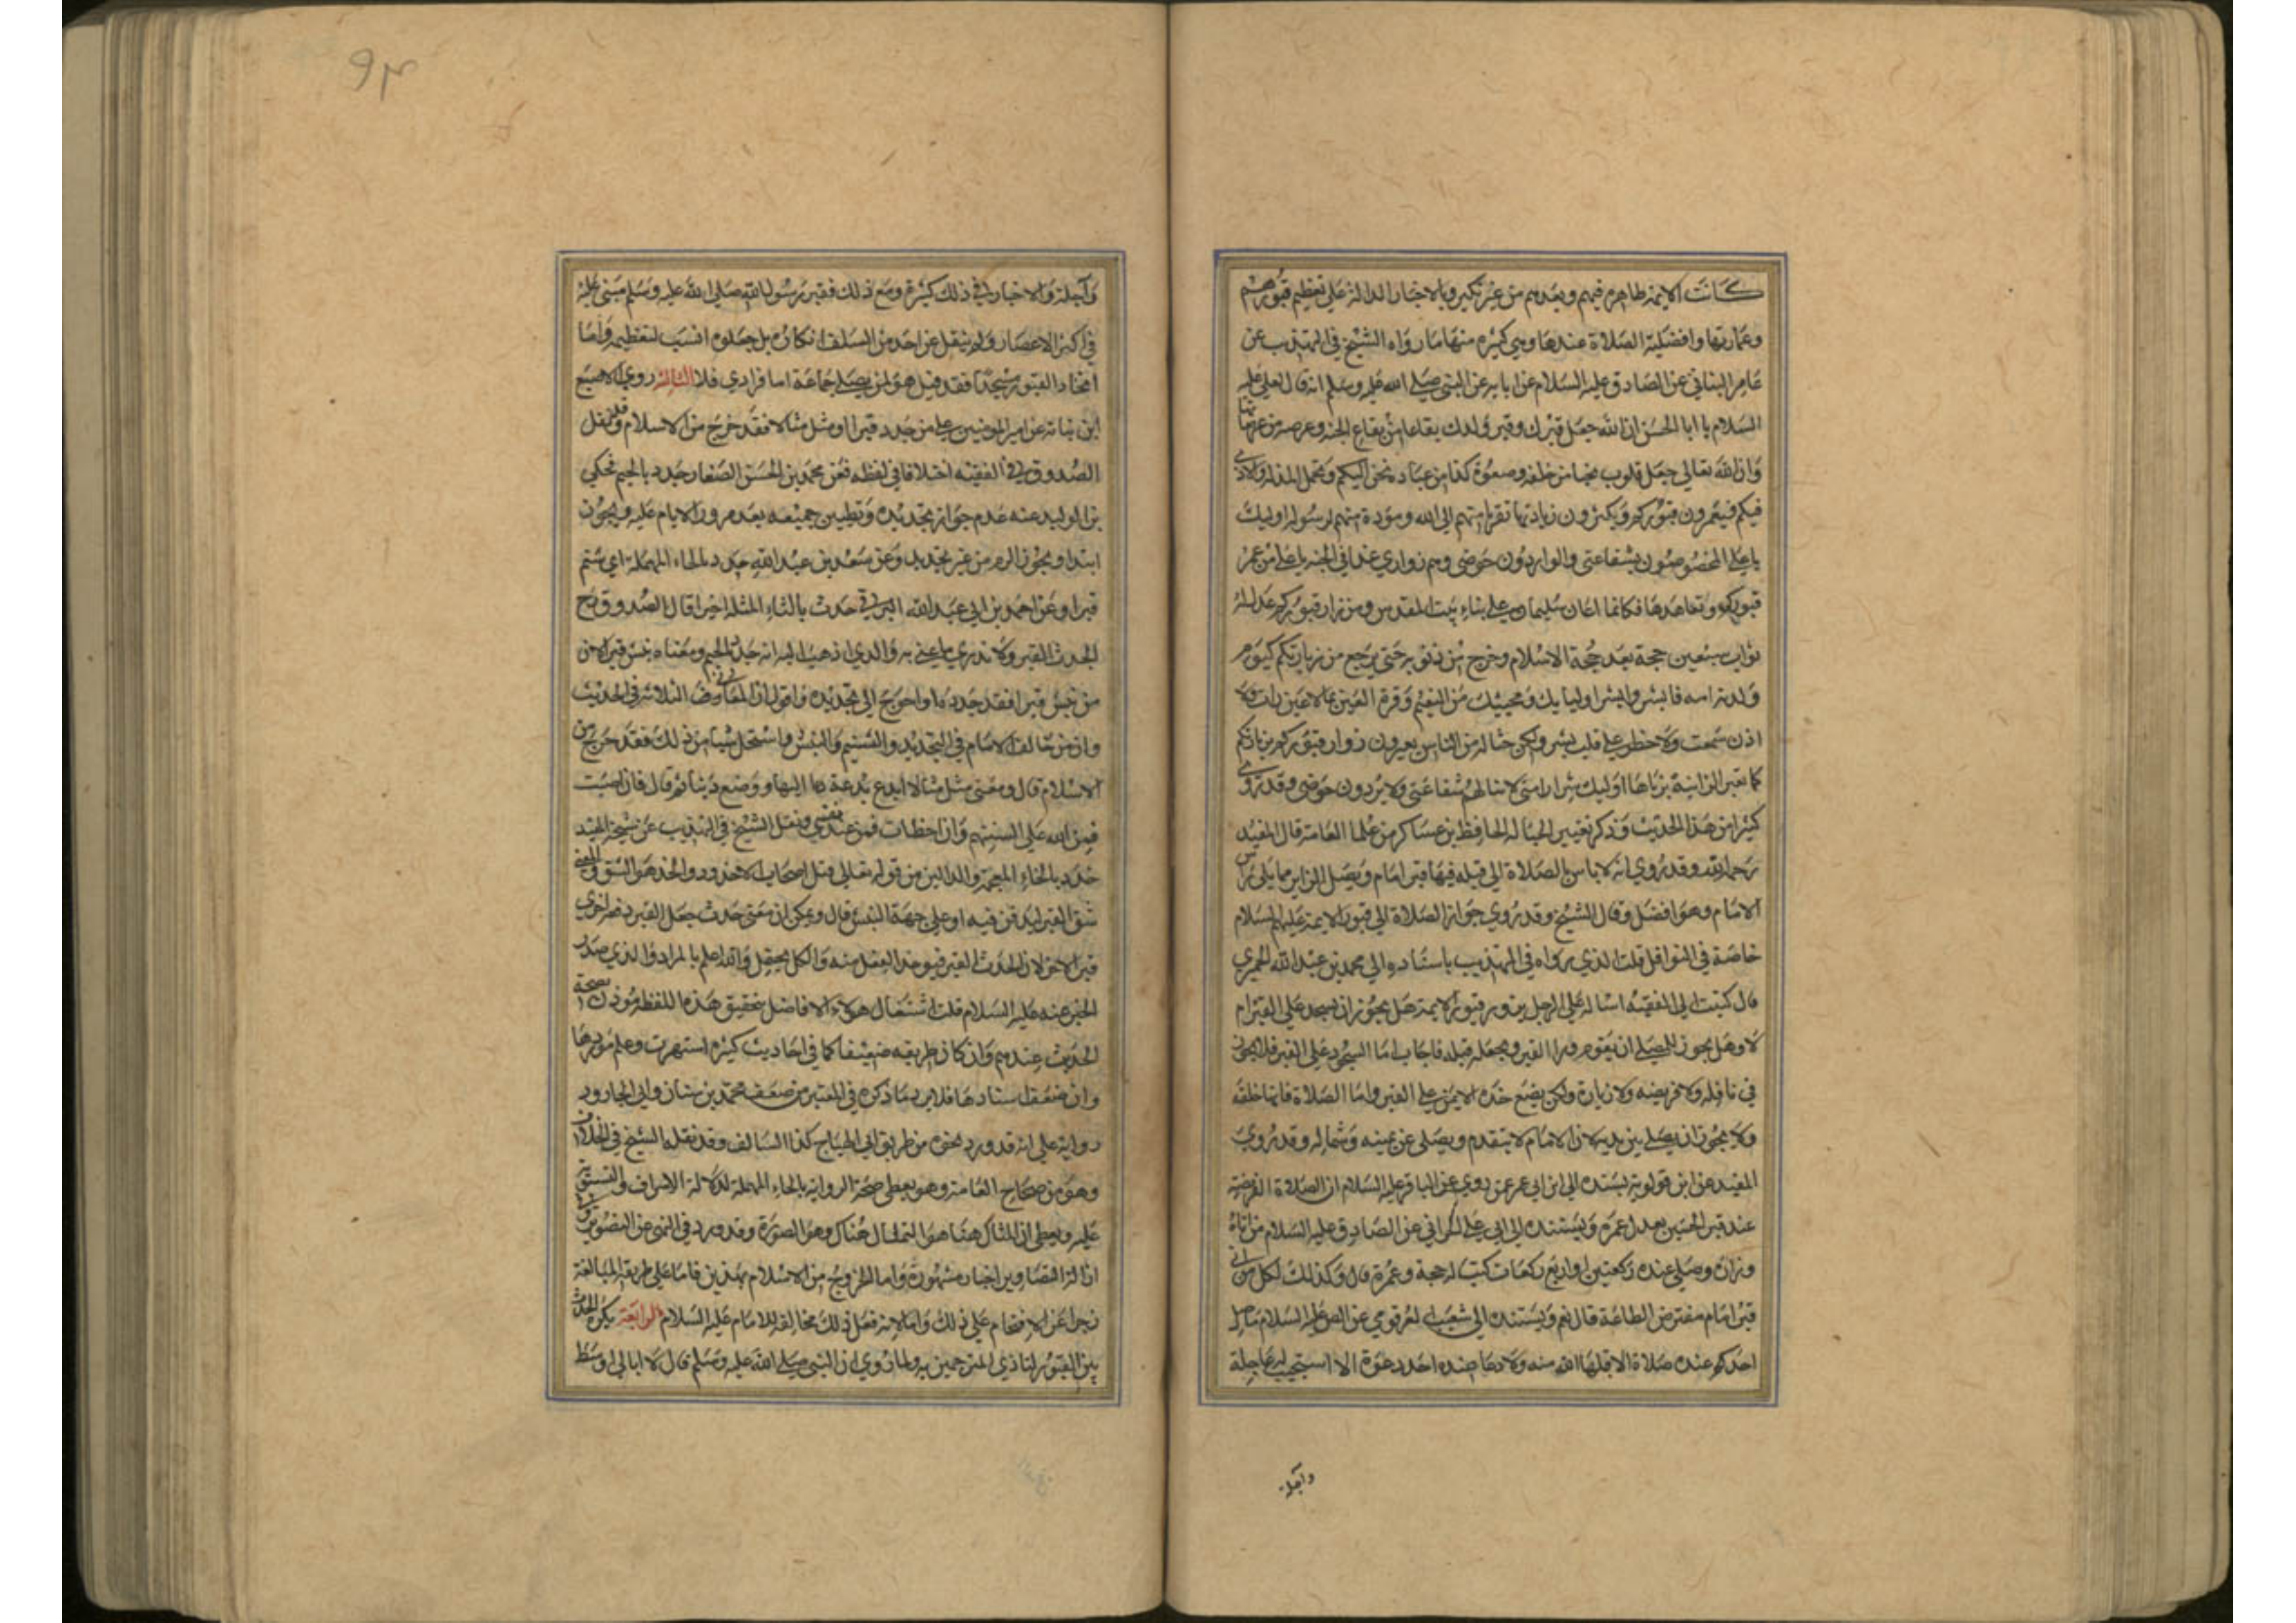 كانت الايمة ظاهرة فيهم وبعدهم من غير نكير وبالاخبار الدالة على تعظيم قبورهم
وعمارتها وافضلية الصلاة عندها وهي كثيرة منها ما رواه الشيخ في التهذيب عن
عامر البناني عن الصادق عليه السلام عن ابايه عن النبي صلى الله عليه وسلم انه قال لعلي عليه
السلام يا ابا الحسن ان الله جعل قبرك وقبر ولدك بقاعا من بقاع الجنة وعرصة من عرصاتها
وان الله تعالى جعل قلوب نجبا من خلقه وصفوة من عباده تحن اليكم وتحمل المذلة والاذى
فيكم فيعمرون قبوركم ويكثرون زيارتها تقربا منهم الى الله ومودة منهم لرسوله اوليك
يا علي المخصوصون بشفاعتي والواردون حوضي وهم زواري غدا في الجنة يا علي من عمر
قبوركم وتعاهدها فكانما اعان سليمان على بناء بيت المقدس ومن زار قبوركم عدل له
ثواب سبعين حجة بعد حجة الاسلام وخرج من ذنوبه حتى يرجع من زيارتكم كيوم
ولدته امه فابشر وابشر اوليايك ومحبيك من النعيم وقرة العين بما لا عين رات ولا
اذن سمعت ولا خطر على قلب بشر ولكن حثالة من الناس يعيرون زوار قبوركم بزيارتكم
كما تعير الزانية بزناها اوليك شرار امتي لا تنالهم شفاعتي ولا يردون حوضي وقد روى
كثيرا من هذا الحديث وذكر تعيير الحثالة الحافظ بن عساكر من علما العامة قال المفيد
رحمه الله وقد روي انه لا باس بالصلاة الى قبلة فيها قبر امام ويصل الزاير مما يلي راس
الامام وهو افضل وقال الشيخ وقد روي جواز الصلاة الى قبور الايمة عليهم السلام
خاصة في النوافل قلت الذي رواه في التهذيب باسناده الى محمد بن عبد الله الحميري
قال كتبت الى الفقيه اساله على الرجل يزور قبور الايمة هل يجوز ان يسجد على القبر ام
لا وهل يجوز للمصلي ان يقوم ورا القبر ويجعله قبلة فاجاب اما السجود على القبر فلا يجوز
في نافلة ولا فريضة ولا زيارة ولكن يضع خده الايمن على القبر واما الصلاة فانها خلفه
ولا يجوز ان يصلي بين يديه لان الامام لا يتقدم ويصلي عن يمينه وشماله وقد روى
المفيد عن ابن قولويه بسنده الى ابن ابي عمير عن روى عن الباقر عليه السلام ان الصلاة الفريضة
عند قبر الحسين تعدل عمرة وبسنده الى ابي علي الحراني عن الصادق عليه السلام من اتاه
وزاره وصلى عنده ركعتين او اربع ركعات كتبت له حجة وعمرة قال وكذلك لكل من اتى
قبر امام مفترض الطاعة قال نعم وبسنده الى شعيب العقرقوفي عن الص عليه السلام ما صلى
احدكم عنده صلاة الا قبلها الله منه ولا دعا عنده احد دعوة الا استجيب له عاجلة
وآجلة
٩٣
وآجلة والاخبار في ذلك كثيرة ومع ذلك فقبر رسول الله صلى الله عليه وسلم مبني عليه
في اكثر الاعصار ولم ينقل عن احد من السلف انكاره بل جعلوه انسب لتعظيمه واما
اتخاذ القبور مسجدا فقد قيل هو لمن يصلي جماعة اما فرادي فلا الثالثة روى الاصبغ
ابن نباتة عن امير المومنين علي من جدد قبرا او مثل مثالا فقد خرج من الاسلام قلت ونقل
الصدوق في الفقيه اختلافا في لفظه فعن محمد بن الحسن الصفار جدد بالجيم فحكى
بن الوليد عنه عدم جواز تجديده وتطيين جميعه بعد مرور الايام عليه ويجوز
ابتدا ويجوز الرم من غير تجديد وعن سعد بن عبد الله حدد بالحاء المهملة اي سنم
قبرا وعن احمد بن ابي عبد الله البرقي جدث بالثاء المثلثة اخيرا قال الصدوق رح
الجدث القبر ولا ندري ما عنى به والذي اذهب اليه انه جدد بالجيم ومعناه نبش قبر لان
من نبش قبرا فقد جدده او احوج الى تجديده واقول ان المعاني في الثلاثة في الحديث
وان من خالف الامام في التجديد والتسنيم والنبش واستحل شيئا من ذلك فقد خرج من
الاسلام قال ومعنى مثل مثالا ابدع بدعة دعا اليها ووضع دينا ثم قال فان اصبت
فمن الله على السنتهم وان اخطات فمن عند نفسي ونقل الشيخ في التهذيب عن شيخه المفيد
خدد بالخاء المعجمة والدالين من قوله تعالى قتل اصحاب الاخدود والخد هو الشق والمعنى
شق القبر ليدفن فيه او على جهة النبش قال ويمكن ان معنى جدث جعل القبر دفعة اخرى
قبر الاخر لان الجدث القبر فيوخذ الفعل منه والكل محتمل والله اعلم بالمراد والذي صدر
الخبر عنه عليه السلام قلت اشتغال هولاء الافاضل بتحقيق هذه اللفظة موذن بصحة
الحديث عندهم وان كان طريقه ضعيفا كما في احاديث كثيرة اشتهرت وعلم موردها
وان ضعف اسنادها فلا يرد ما ذكره في المعتبر من ضعف محمد بن سنان وابي الجارود
رواية على انه قد ورد نحوه من طريق ابي الهياج كذا السالف وقد نقله الشيخ في الخلاف
وهو من صحاح العامة وهو يعطي صحة الرواية بالحاء المهملة لدلالة الاشراف والتسوية
عليه ويعطي ان المثال هنا هو التمثال هناك وهو الصورة وقد ورد في النهي عن التصوير و
ازالة التصاوير اخبار مشهورة واما الخروج من الاسلام بهذين فاما على طريقة المبالغة
زجرا عن الاقتحام على ذلك واما لانه فعل ذلك مخالفة للامام عليه السلام الرابعة يكره الحدث
بين القبور لتاذي المترحمين به ولما روي ان النبي صلى الله عليه وسلم قال لا ابالي اوسط